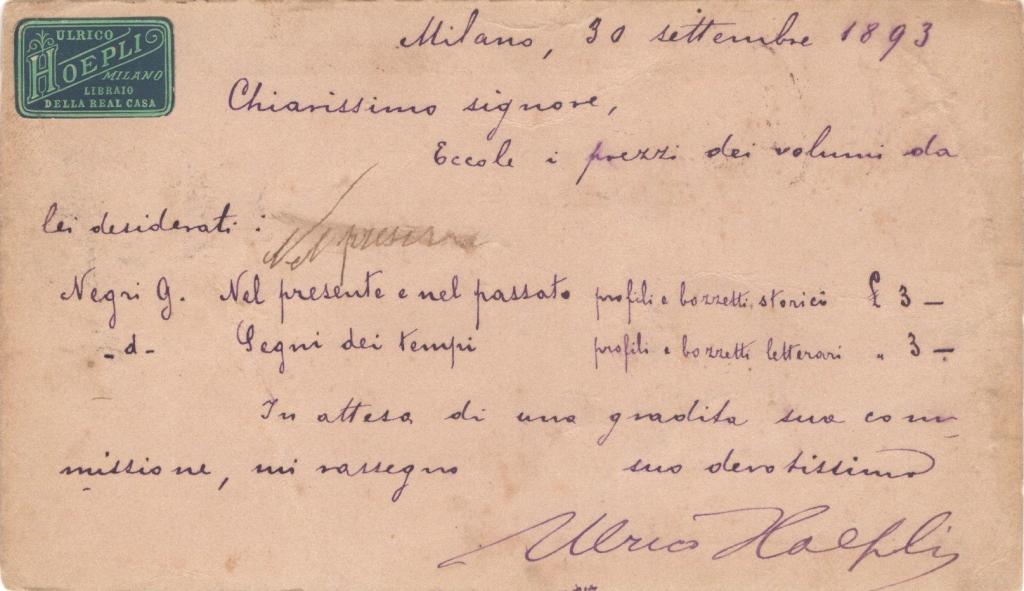 ULRICO
HOEPLI
MILANO
LIBRAIO
DELLA REAL CASA
Milano, 30 settembre 1893
Chiarissimo signore,
Eccole i prezzi dei volumi da
lei desiderati:
Nel presen
Negri G. Nel presente e nel passato profili e bozzetti storici £ 3 —
- d - Segni dei tempi profili e bozzetti letterari " 3 —
In attesa di una gradita sua com-
missione, mi rassegno suo devotissimo
Ulrico Hoepli